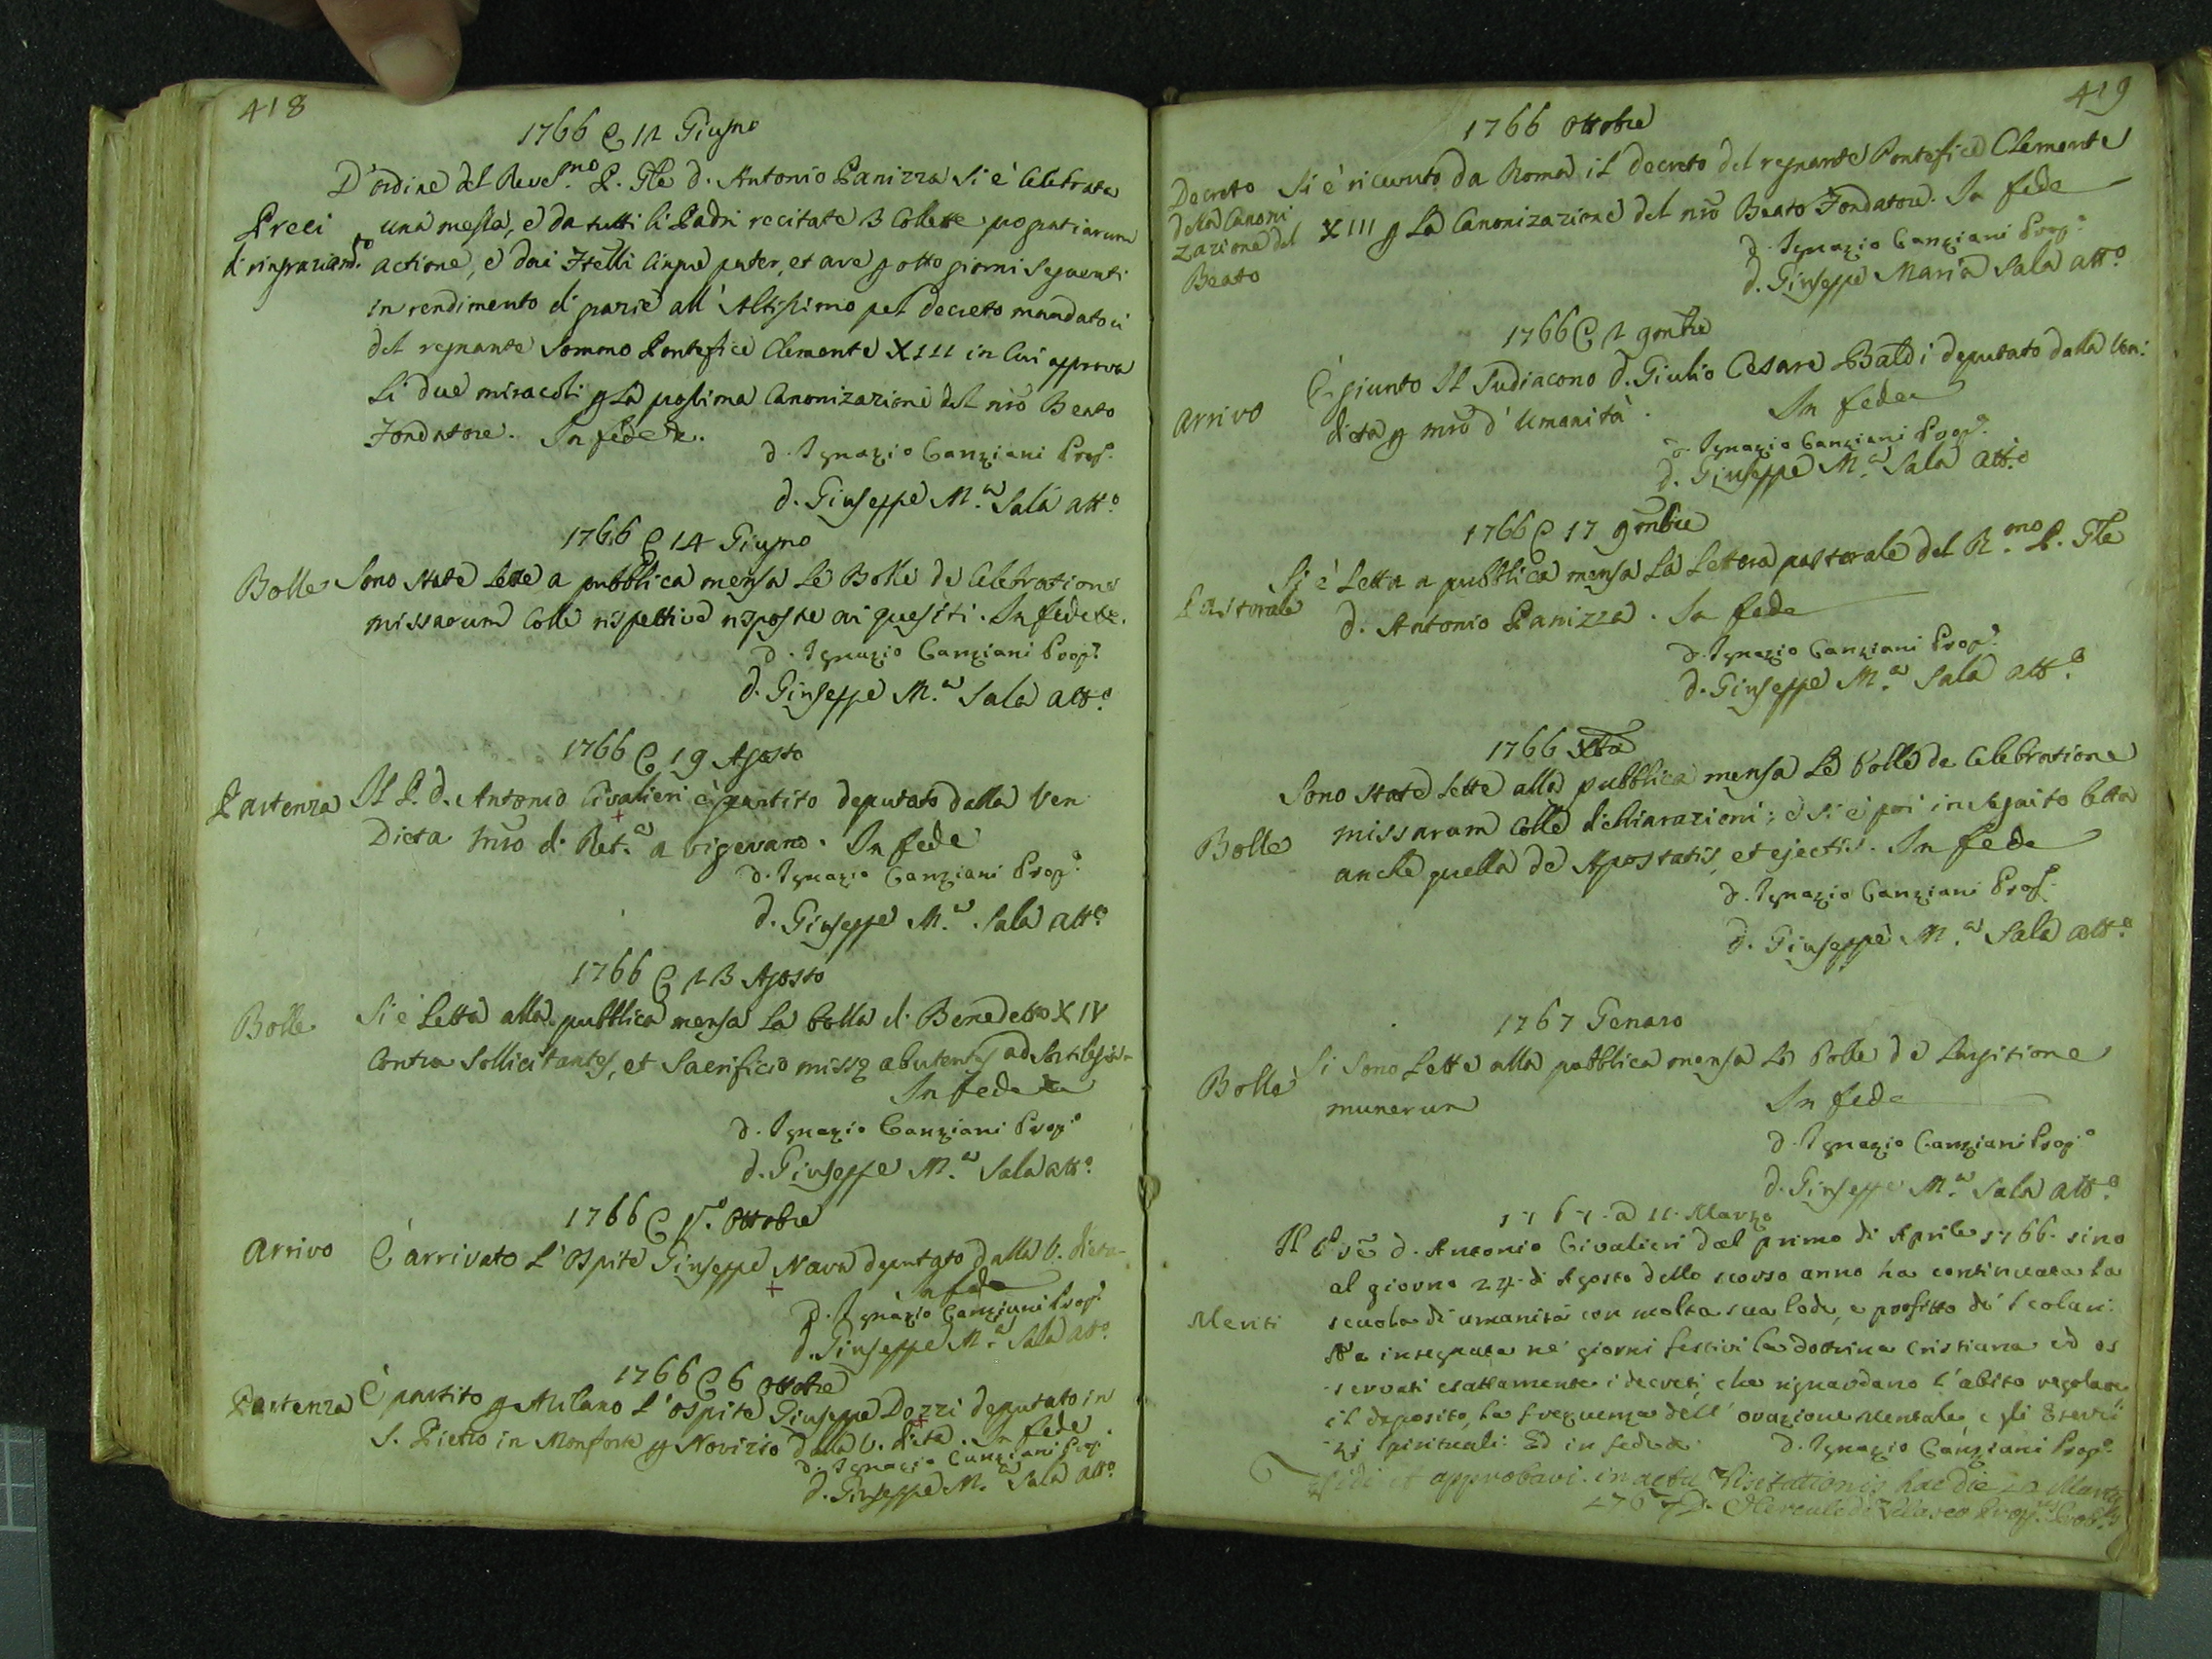 418
1766 @ 12 Giugno
D'ordine del Reves.mo P. Gle d. Antonio Panizza si è celebrata
Preci una messa, e da tutti li Padri recitate 3 Collette pro gratiarum
di ringraziam.to actione, e dai Ftelli cinque pater, et ave p otto giorni seguenti
in rendimento di grazie all'Altissimo pel decreto mandatoci
del regnante Sommo Pontefice Clemente XIII in cui approva
li due miracoli p la prossima Canonizazione del nro Beato
Fondatore. In fede &.
d. Ignazio Canziani Prep.
d. Giuseppe M.a Sala att.o
1766 @ 14 Giugno
Bolle Sono state lette a pubblica mensa le Bolle de Celebratione
missarum colle rispettive risposte ai quesiti. In fede &.
d. Ignazio Canziani Prep.
d. Giuseppe M.a Sala att.o
1766 @ 19 Agosto
Partenza Il P. d. Antonio Civalieri è partito deputato dalla Ven.
Dieta mro di Ret.a a vigevano. In fede
d. Ignazio Canziani Prep.o
d. Giuseppe M.a Sala att.o
1766 @ 23 Agosto
Bolle Si è letta alla pubblica mensa la bolla di Benedetto XIV
contra sollicitantes, et sacrificio missę abutentes ad sortilegia
In fede &
d. Ignazio Canziani Prep.o
d. Giuseppe M.a Sala att.o
1766 @ p.o Ottobre
Arrivo È arrivato l'Ospite Giuseppe Nava deputato dalla V. dieta
In fede
d. Ignazio Canziani Prep.
d. Giuseppe M.a Sala att.o
1766 @ 6 Ottobre
Partenza È partito p Milano l'ospite Giuseppe Dozzi deputato in
S. Pietro in Monforte p Novizio dalla V. dieta. In fede
d. Ignazio Canziani Prep.
d. Giuseppe M.a Sala att.o
419
1766 Ottobre
Decreto Si è ricevuto da Roma il decreto del regnante Pontefice Clemente
della Canoni XIII p la Canonizazione del nro Beato Fondatore. In fede
zazione del d. Ignazio Canziani Prep.o
Beato d. Giuseppe Maria Sala att.o
1766 @ 2 9mbre
Arrivo È giunto Il Sudiacono d. Giulio Cesare Baldi deputato dalla Ven:
dieta p mro d'Umanità. In fede
d. Ignazio Canziani Prep.o
d. Giuseppe M.a Sala att.o
1766 @ 17 9mbre
Pastorale Si è letta a pubblica mensa la lettera pastorale del R.mo P. Gle
d. Antonio Panizza. In fede
d. Ignazio Canziani Prep.o
d. Giuseppe M.a Sala att.o
1766
Sono state lette alla pubblica mensa le bolle de Celebratione
Bolle missarum colle dichiarazioni; e si è poi in seguito letta
anche quella de Apostatis, et ejectis. In fede
d. Ignazio Canziani Prep.
d. Giuseppe M.a Sala att.o
1767 Genaro
Bolle Si sono lette alla pubblica mensa le Bolle de Largitione
munerum In fede
d. Ignazio Canziani Prep.o
d. Giuseppe M.a Sala att.o
1767. a 11. Marzo
Il P. d. Antonio Civalieri dal primo di Aprile 1766. sino
al giorno 24. di Agosto dello scorso anno ha continuata la
Meriti scuola di umanità con molta sua lode, e profitto de' scolari.
Ha insegnata ne' giorni festivi la dottrina cristiana ed os
servati esattamente i decreti, che riguardano l'abito regolare
il deposito, la frequenza dell'orazione mentale, e gli Eserci
zi spirituali. Ed in fede &. d. Ignazio Canziani Prep.o
Vidi et approbavi in actu Visitationis hac die Martii
1767 D. Hercules de Velasco Prep.